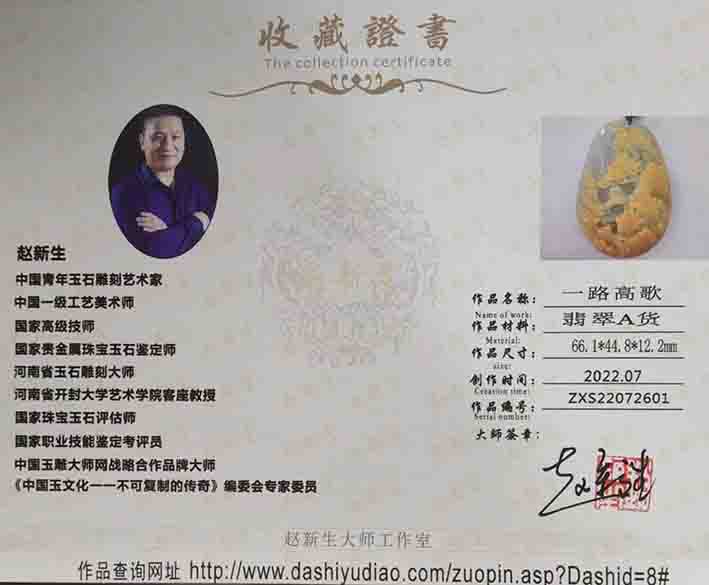 收藏證書
The collection certificate
赵新生
中国青年玉石雕刻艺术家
中国一级工艺美术师
国家高级技师
国家贵金属珠宝玉石鉴定师
河南省玉石雕刻大师
河南省开封大学艺术学院客座教授
国家珠宝玉石评估师
国家职业技能鉴定考评员
中国玉雕大师网战略合作品牌大师
《中国玉文化一一不可复制的传奇》编委会专家委员
作品名称: 一路高歌
Name of work:
作品材料: 翡翠A货
Material:
作品尺寸: 66.1*44.8*12.2mm
size:
创作时间: 2022.07
Creation time:
作品编号: ZXS22072601
Serial number:
大师签章:
赵新生大师工作室
作品查询网址 http://www.dashiyudiao.com/zuopin.asp?Dashid=8#